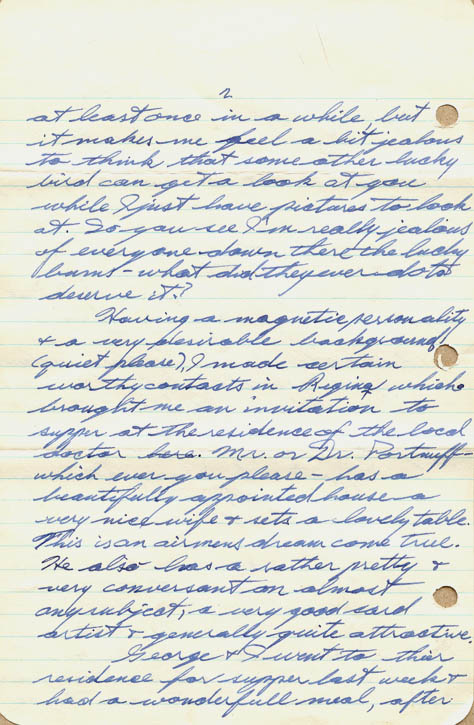 2
at least once in a while, but
it makes me feel a bit jealous
to think that some other lucky
bird can get a look at you
while I just have pictures to look
at. So you see I'm really jealous
of everyone down there the lucky
bums - what did they ever do to
deserve it?
Having a magnetic personality
& a very desirable background
(quiet please), I made certain
worthy contacts in Regina which
brought me an invitation to
supper at the residence of the local
doctor here. Mr. or Dr.
which ever you please - has a
beautifully appointed house a
very nice wife & sets a lovely table.
This is an airmens dream come true.
He also has a rather pretty &
very conversant on almost
any subject; a very good card
artist & generally quite attractive.
George & I went to this
residence for supper last week &
had a wonderfull meal, after